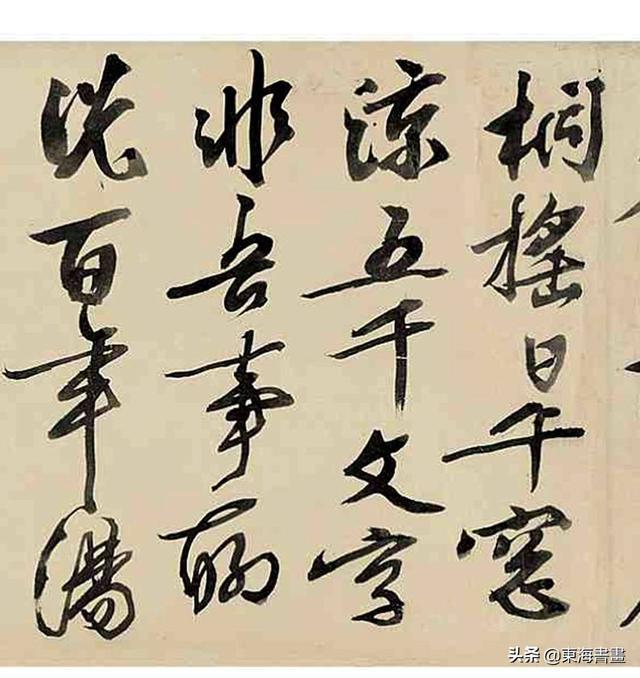 桐搖日午窓
涼五千文字
非吾事聊
洗百年湯
头条 @東海書畫